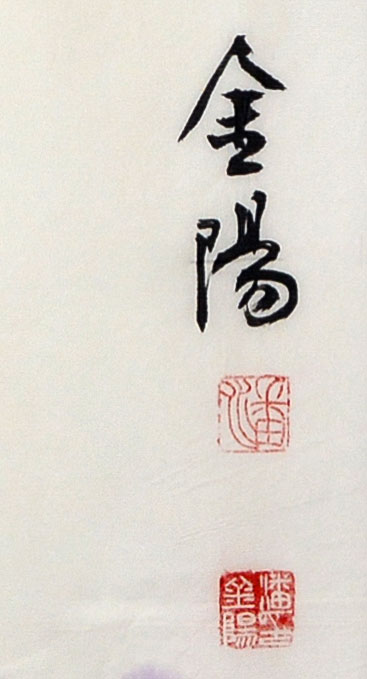 金陽
潘
潘
金陽